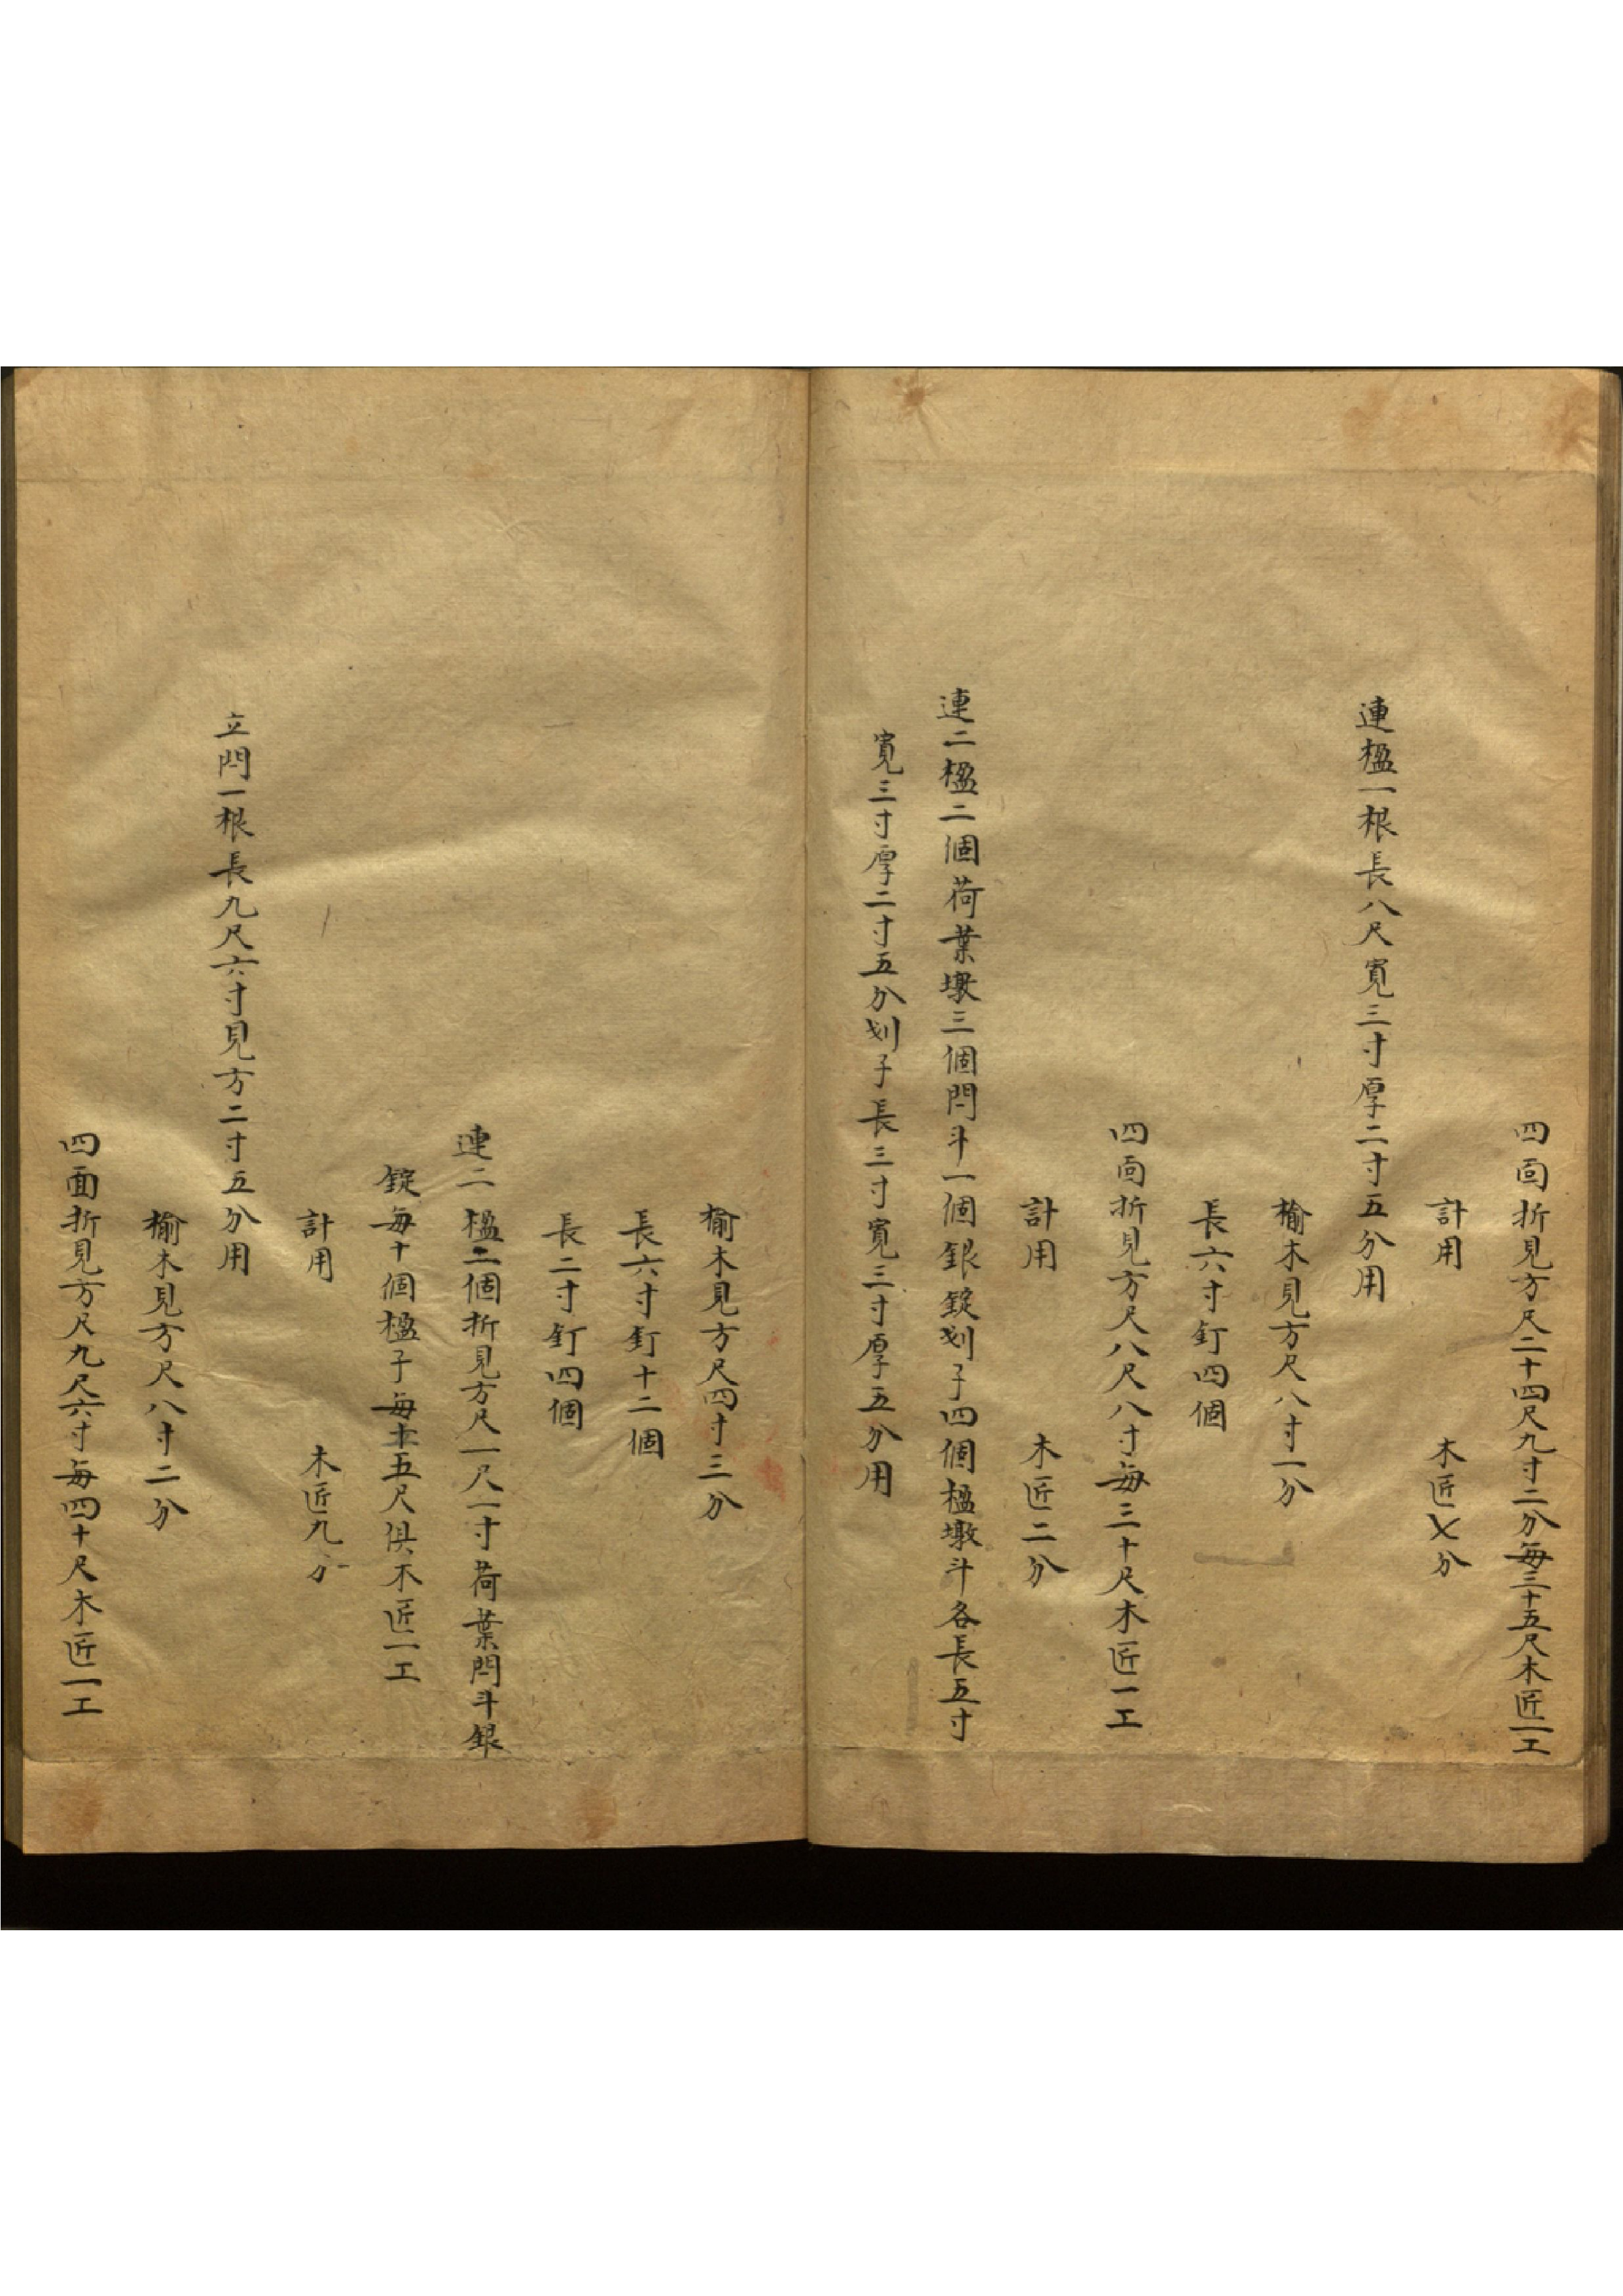 四面折見方尺二十四尺九寸二分每三十五尺木匠一工
計用　木匠七分
連楹一根長八尺寬三寸厚二寸五分用
榆木見方尺八寸一分
長六寸釘四個
四面折見方尺八尺八寸每三十尺木匠一工
計用　木匠二分
連二楹二個荷葉墩三個閂斗一個銀錠划子四個楹墩斗各長五寸
寬三寸厚二寸五分划子長三寸寬三寸厚五分用
榆木見方尺四寸三分
長六寸釘十二個
長二寸釘四個
連二楹二個折見方尺一尺一寸荷葉閂斗銀
錠每十個楹子每十五尺俱木匠一工
計用　木匠九分
立閂一根長九尺六寸見方二寸五分用
榆木見方尺八寸二分
四面折見方尺九尺六寸每四十尺木匠一工